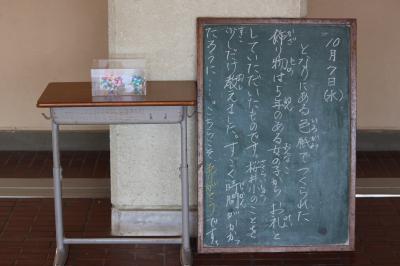 10月7日(水)
となりにある色紙でつくられた
飾り物は5年のある女の子から お礼と
していただいたものです。桜井小のことを
少しだけ教えました。すごく時間がかかっ
ただろうに……どうもありがとうです。